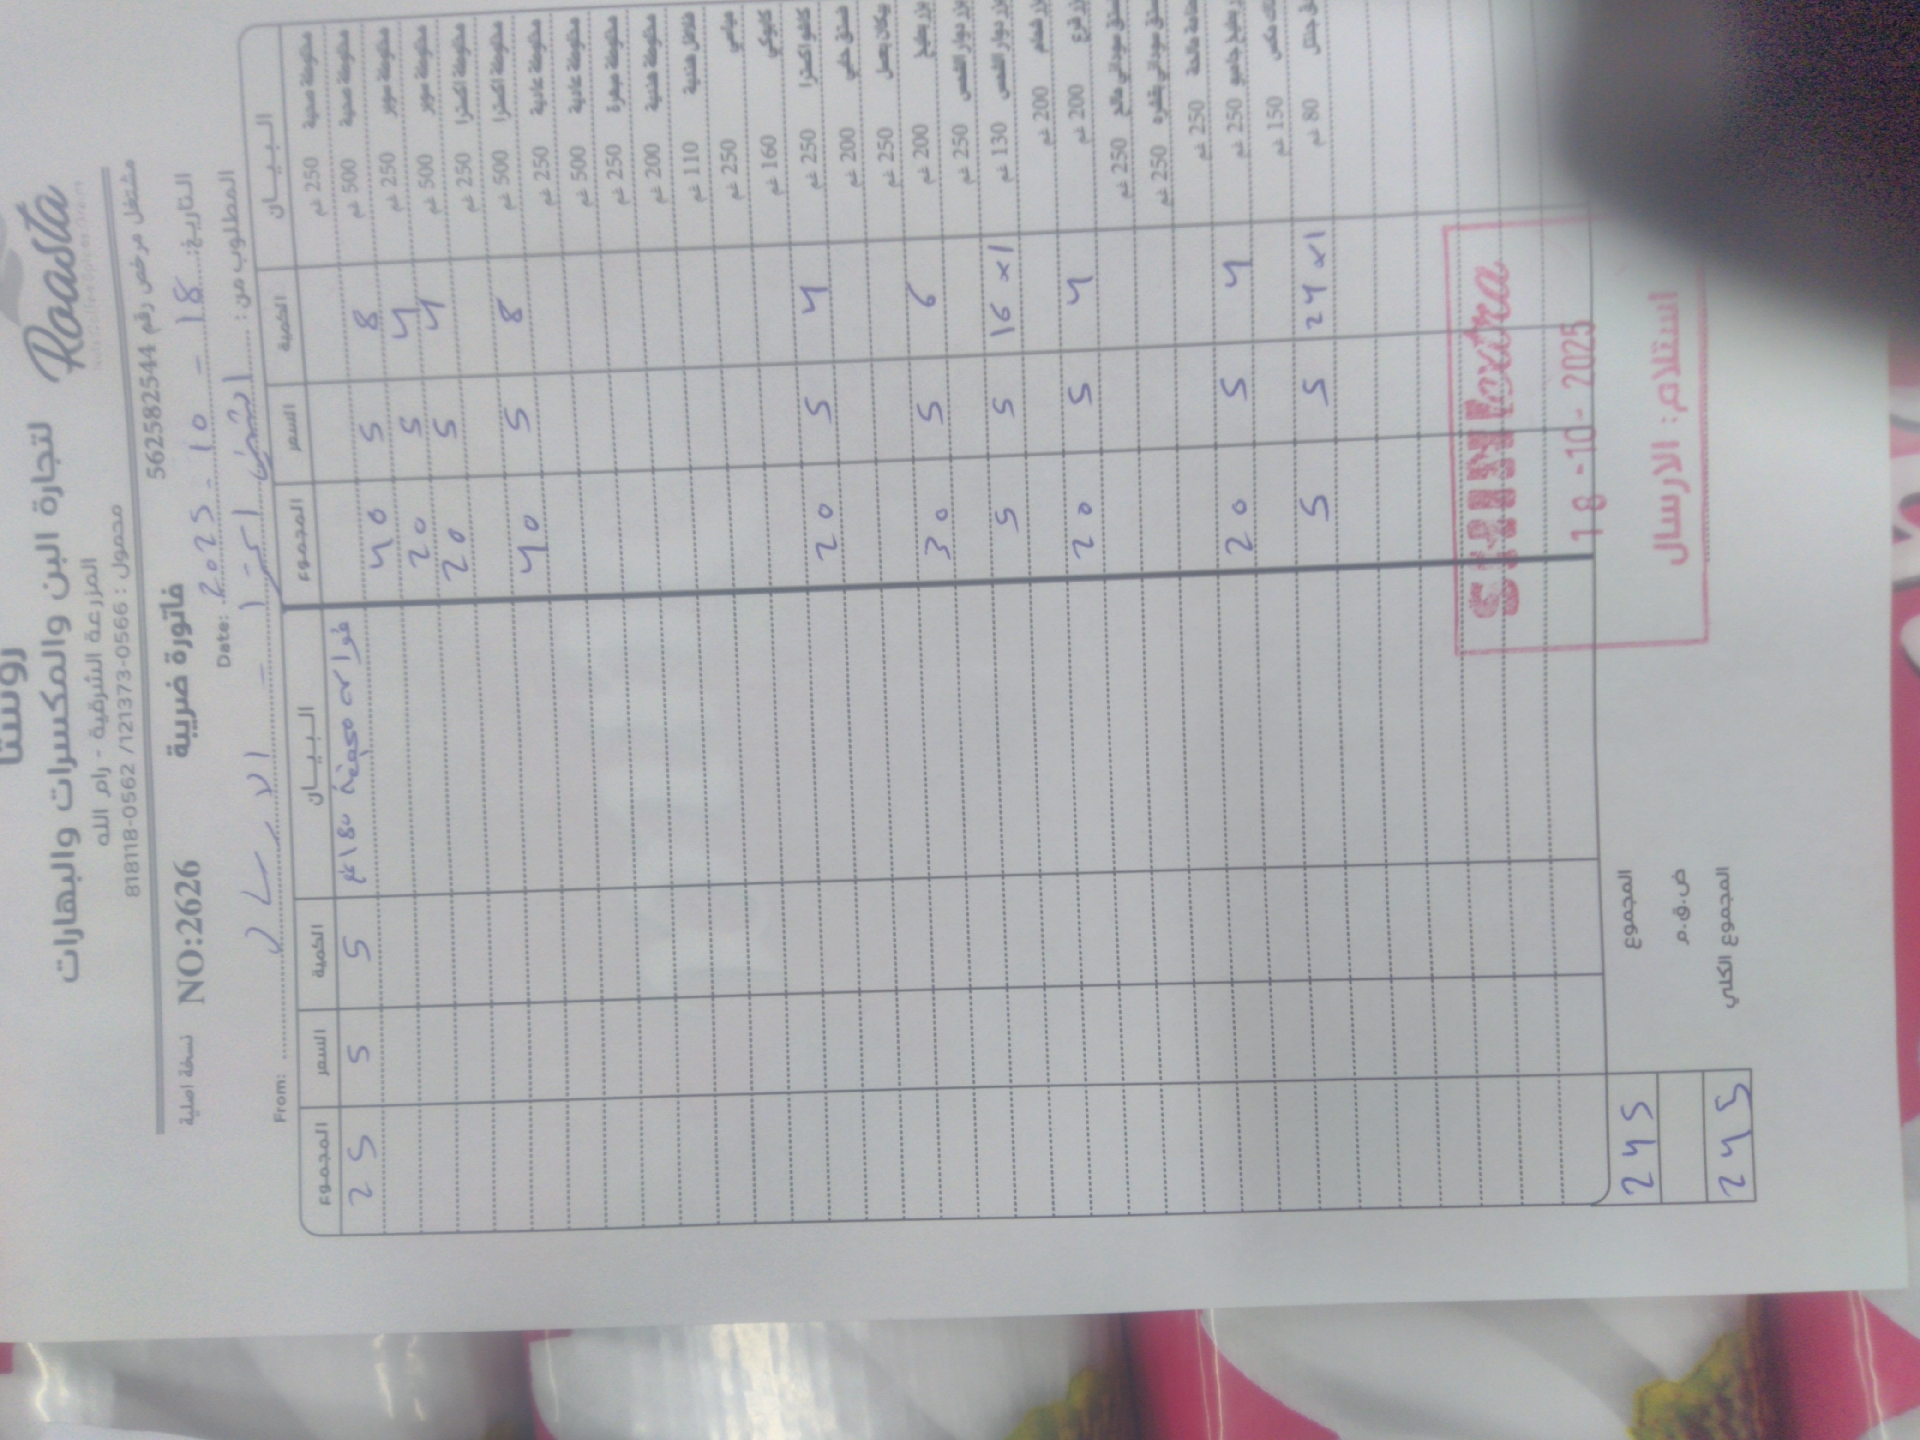 روستا
Roasta
لتجارة البن والمكسرات والبهارات
المزرعة الشرقية - رام الله
محمول : 0566-121373 / 0562-818118
مشتغل مرخص رقم 562582544
فاتورة ضريبية
نسخة اصلية NO:2626
التاريخ: 18 - 10 - 2025 Date:
المطلوب من: From:
البيـــان الكمية السعر المجموع
250 غم مخلوطة صحية
500 غم مخلوطة صحية 8 5 40
250 غم مخلوطة سوبر 4 5 20
500 غم مخلوطة سوبر 4 5 20
250 غم مخلوطة اكسترا
500 غم مخلوطة اكسترا 8 5 40
250 غم مخلوطة عادية
500 غم مخلوطة عادية
250 غم مخلوطة مبهرة
200 غم مخلوطة هندية
110 غم فلافل هندية
250 غم
160 غم
250 غم كاشو اكسترا 4 5 20
200 غم فستق حلبي
250 غم
200 غم بزر بطيخ 6 5 30
250 غم بزر دوار الشمس
130 غم بزر دوار الشمس 16 x 1 5 5
200 غم
200 غم بزر قرع 4 5 20
250 غم فستق سوداني مالح
250 غم فستق سوداني بقشره
250 غم
250 غم 4 5 20
150 غم
80 غم 24 x 1 5 5
البيـــان الكمية السعر المجموع
5 5 25
SHINI extra
18-10-2025
استلام: الارسال
المجموع 245
ض.ق.م
المجموع الكلي 245